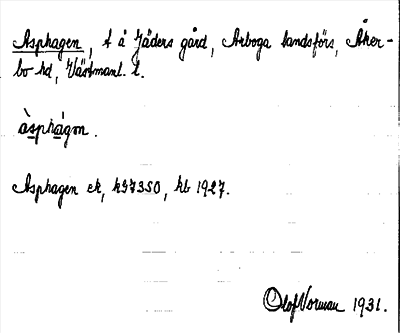 Asphagen, t å Jäders gård, Arboga landsförs, Åker-
bo hd, Västmanl. l.
àsphágɛn.
Asphagen ek, h97350, hb 1927.
Olof Vorman 1931.